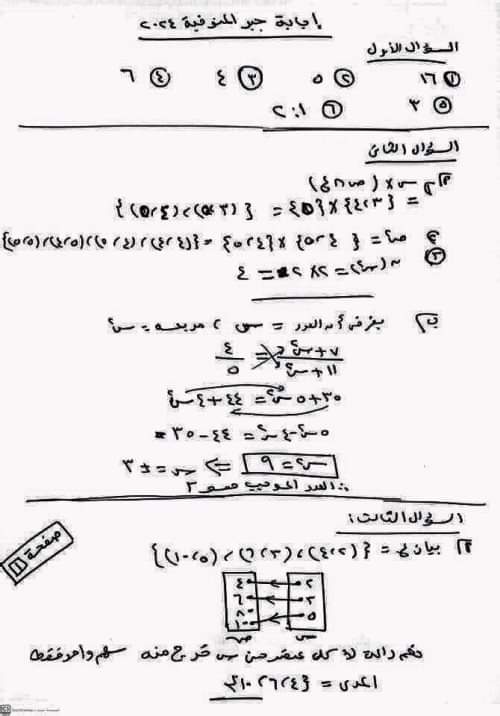 إجابة جبر المنوفية ٢٠٢٤
السؤال الأول
① ١٦ ② ٥ ③ ٤ ④ ٦
⑤ ٣ ⑥ ٢:١
السؤال الثانى
س × (ص ∩ ع)
= {٣،٤} × {٥} = {(٣،٥)،(٤،٥)}
ص٢ = {٤،٥} × {٤،٥} = {(٤،٤)،(٤،٥)،(٥،٤)،(٥،٥)}
③ ن(س٢) = ٢×٢ = ٤
ب بفرض أن العدد = س ، مربعه = س٢
٧+س٢ / ١١+س٢ = ٤ / ٥
٣٥+٥س٢ = ٤٤+٤س٢
٥س٢-٤س٢ = ٤٤-٣٥
س٢ = ٩ ⇐ س = ±٣
∴ العدد الموجب هو ٣
السؤال الثالث:
أ بيان ع = {(٢،٤)،(٣،٦)،(٥،١٠)}
صفحة ١
٤ ٢
٦ ٣
٨ ٥
١٠
ص س
وهى دالة لأن كل عنصر من س خرج منه سهم واحد فقط
المدى = {٤،٦،١٠}